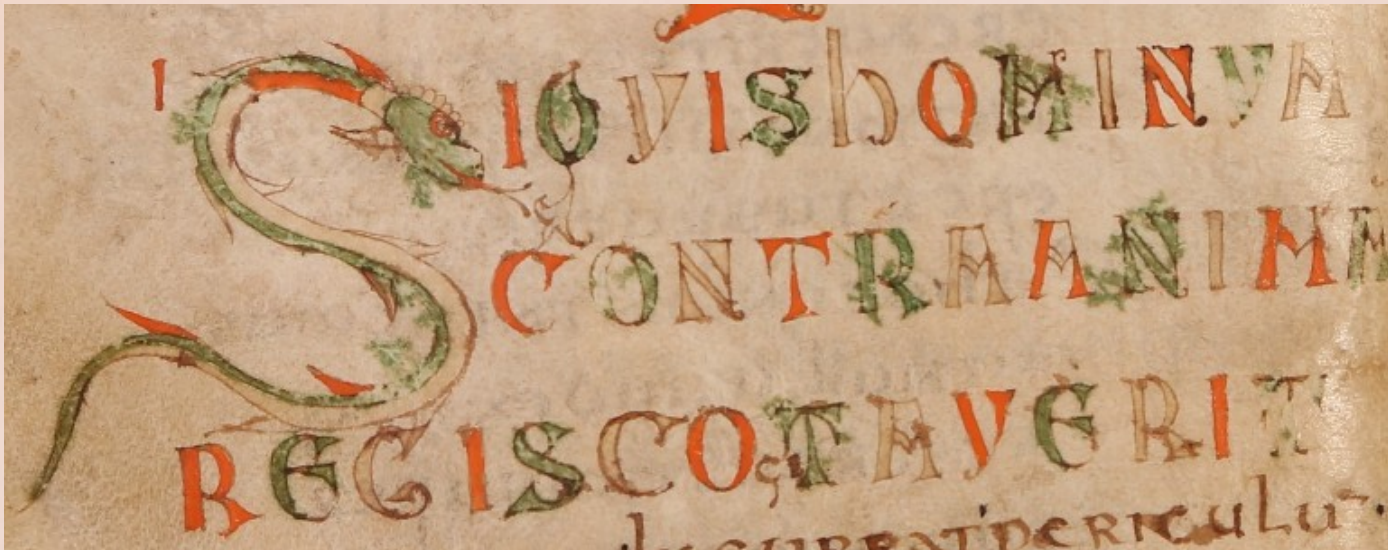 I SIQVIS hOMINVM
CONTRA ANIMAM
REGIS COgiTAVERIT
Incurrat periculū.